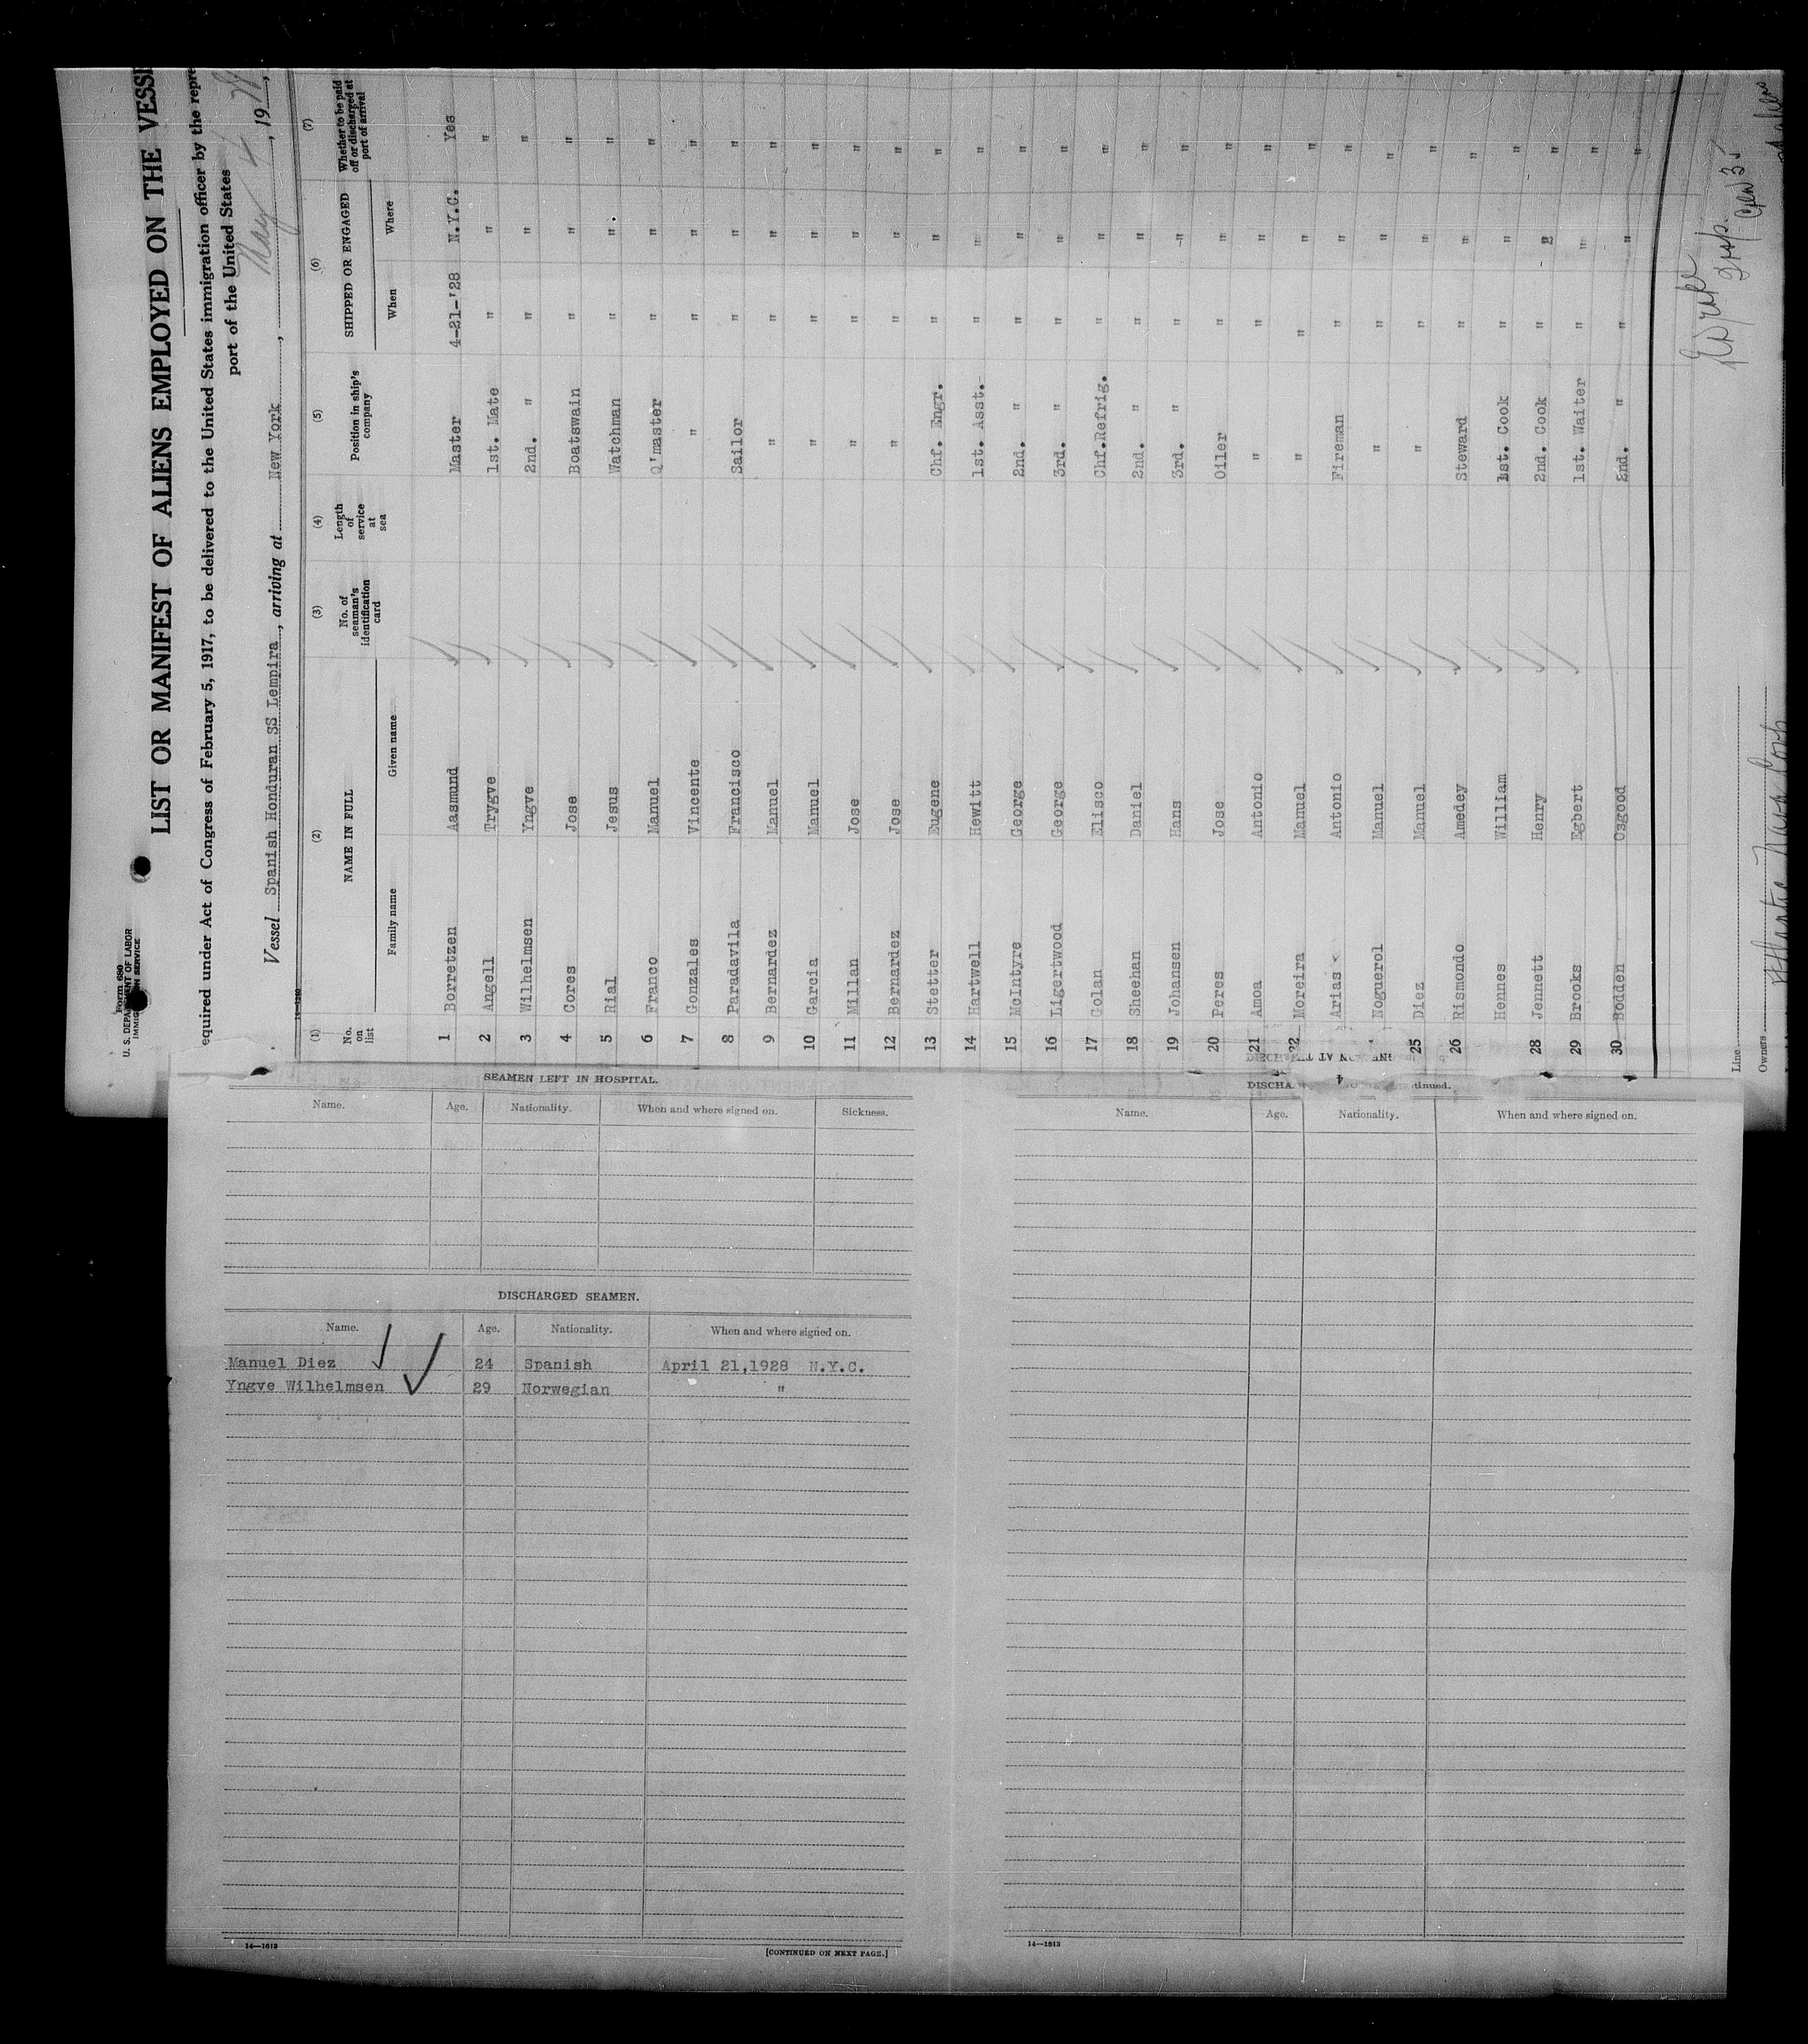 Form 680
U. S. DEPARTMENT OF LABOR
IMMIGRATION SERVICE
LIST OR MANIFEST OF ALIENS EMPLOYED ON THE
equired under Act of Congress of February 5, 1917, to be delivered to the United States immigration officer by the
port of the United States
Vessel Spanish Honduran SS Lempira, arriving at New York, May 4, 1928,
(1) (2) (3) (4) (5) (6) (7)
No. on list NAME IN FULL No. of seaman's identification card Length of service at sea Position in ship's company SHIPPED OR ENGAGED Whether to be paid off or discharged at port of arrival
Family name Given name When Where
1 Borretzen Aasmund Master 4-21-'28 N.Y.C. Yes
2 Angell Trygve 1st. Mate " " "
3 Wilhelmsen Yngve 2nd. " " " "
4 Cores Jose Boatswain " " "
5 Rial Jesus Watchman " " "
6 Franco Manuel Q'master " " "
7 Gonzales Vincente " " " "
8 Paradavila Francisco Sailor " " "
9 Bernardez Manuel " " " "
10 Garcia Manuel " " " "
11 Millan Jose " " " "
12 Bernardez Jose " " " "
13 Stetter Eugene Chf. Engr. " " "
14 Hartwell Hewitt 1st. Asst. " " "
15 McIntyre George 2nd. " " " "
16 Ligertwood George 3rd. " " " "
17 Golan Elisco Chf.Refrig. " " "
18 Sheehan Daniel 2nd. " " " "
19 Johansen Hans 3rd. " " " "
20 Peres Jose Oiler " " "
21 Amoa Antonio " " " "
22 Moreira Manuel " " " "
Arias Antonio Fireman " " "
Noguerol Manuel " " " "
25 Diez Manuel " " " "
26 Rismondo Amedey Steward " " "
Hennes William 1st. Cook " " "
28 Jennett Henry 2nd. Cook " " "
29 Brooks Egbert 1st. Waiter " " "
30 Bodden Osgood 2nd. " " " "
Line
Owners Atlantic Navg Corp
SEAMEN LEFT IN HOSPITAL.
Name. Age. Nationality. When and where signed on. Sickness.
DISCHARGED SEAMEN.
Name. Age. Nationality. When and where signed on.
Manuel Diez 24 Spanish April 21,1928 N.Y.C.
Yngve Wilhelmsen 29 Norwegian "
14—1613
[CONTINUED ON NEXT PAGE.]
Name. Age. Nationality. When and where signed on.
14—1613